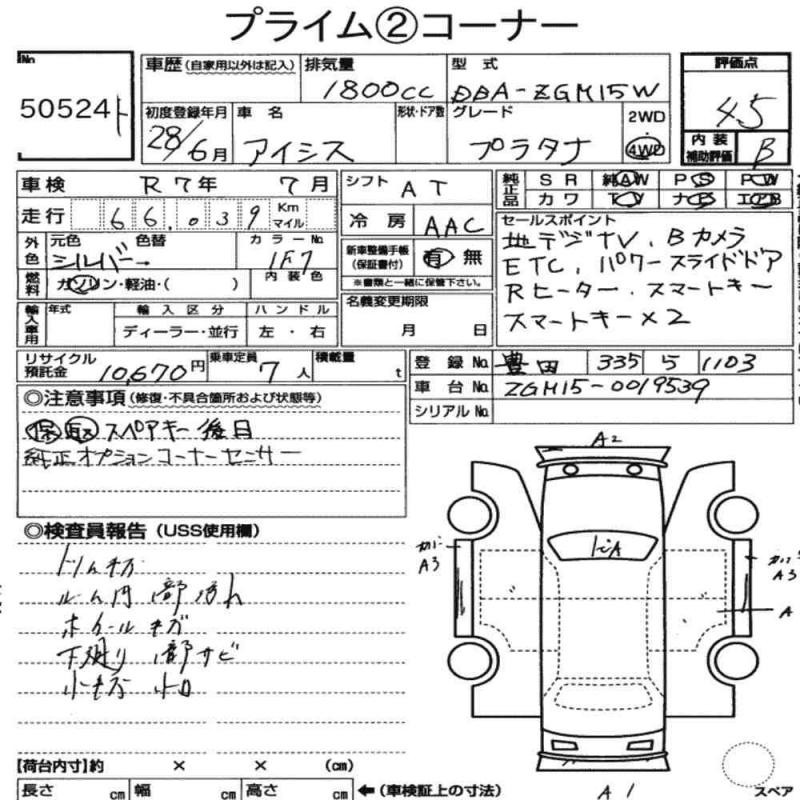 プライム②コーナー
No 50524
車歴(自家用以外は記入) 排気量 1800cc 型式 DBA-ZGM15W
評価点 4.5
初度登録年月 28/6月 車名 アイシス 形状・ドア数 グレード プラタナ 2WD 4WD
内装補助評価 B
車検 R7年 7月
走行 66,039 Km マイル
外色 元色 シルバー 色替 カラーNo. 1F7
燃料 ガソリン・軽油・( ) 内装色
輸入車用 年式 輸入区分 ディーラー・並行 ハンドル 左・右
リサイクル預託金 10,670円 乗車定員 7人 積載量 t
シフト AT
冷房 AAC
新車整備手帳(保証書付) 有 無
※書類と一緒に保管下さい。
名義変更期限 月 日
純正品 SR 純AW PS PW
カワ TV ナビ エアB
セールスポイント
地デジTV、Bカメラ
ETC、パワースライドドア
Rヒーター、スマートキー
スマートキー×2
登録No. 豊田 335 ら 1103
車台No. ZGM15-0019539
シリアルNo.
◎注意事項(修復・不具合個所および状態等)
保 取 スペアキー後日
純正オプションコーナーセンサー
◎検査員報告(USS使用欄)
トリムキズ
ルーム内 部汚れ
ホイールキズ
下廻り 部サビ
小キズ 小凹
A2
A3
A3
A
A1
スペア
【荷台内寸】約 × × (cm)
長さ cm 幅 cm 高さ cm ←(車検証上の寸法)